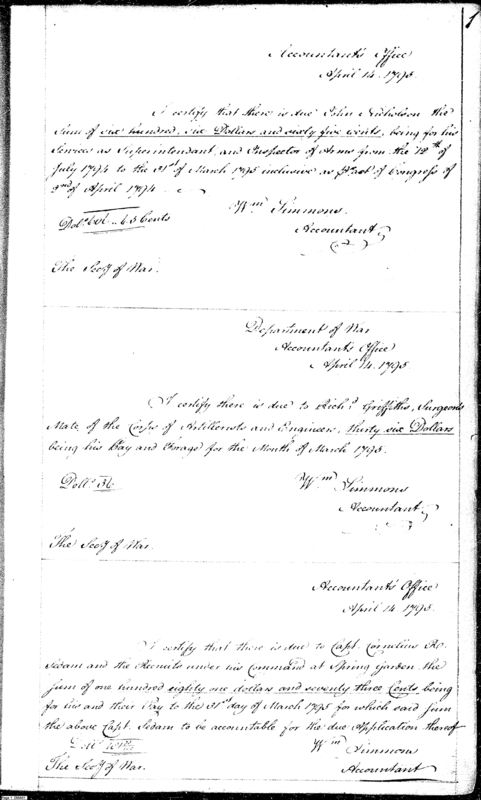 1
Accountant's Office
April 14. 1795.
I certify that there is due John Nicholson the
Sum of six hundred, six Dollars and sixty five cents, being for his
Services as Superintendant, and Inspector of Arms from the 12th of
July 1794 to the 31st of March 1795 inclusive as pr. act of Congress of
2nd of April 1794.
Wm Simmons.
Dols 606 .. 65 Cents
Accountant
The Secy of War.
Department of War
Accountant's Office
April 14. 1795.
I certify there is due to Richd Griffiths, Surgeons
Mate of the Corps of Artillerists and Engineers, thirty six Dollars
being his Pay and Forage for the Month of March 1795.
Dolls 36
Wm Simmons
Accountant
The Secy of War.
Accountant's Office
April 14. 1795.
I certify that there is due to Capt. Cornelius R.
Sedam and the Recruits under his Command at Spring Garden the
Sum of one hundred eighty one dollars and seventy three Cents being
for his and their Pay to the 31st day of March 1795 for which said sum
the above Capt. Sedam to be accountable for the due Application thereof
Wm Simmons
The Secy of War.
Accountant